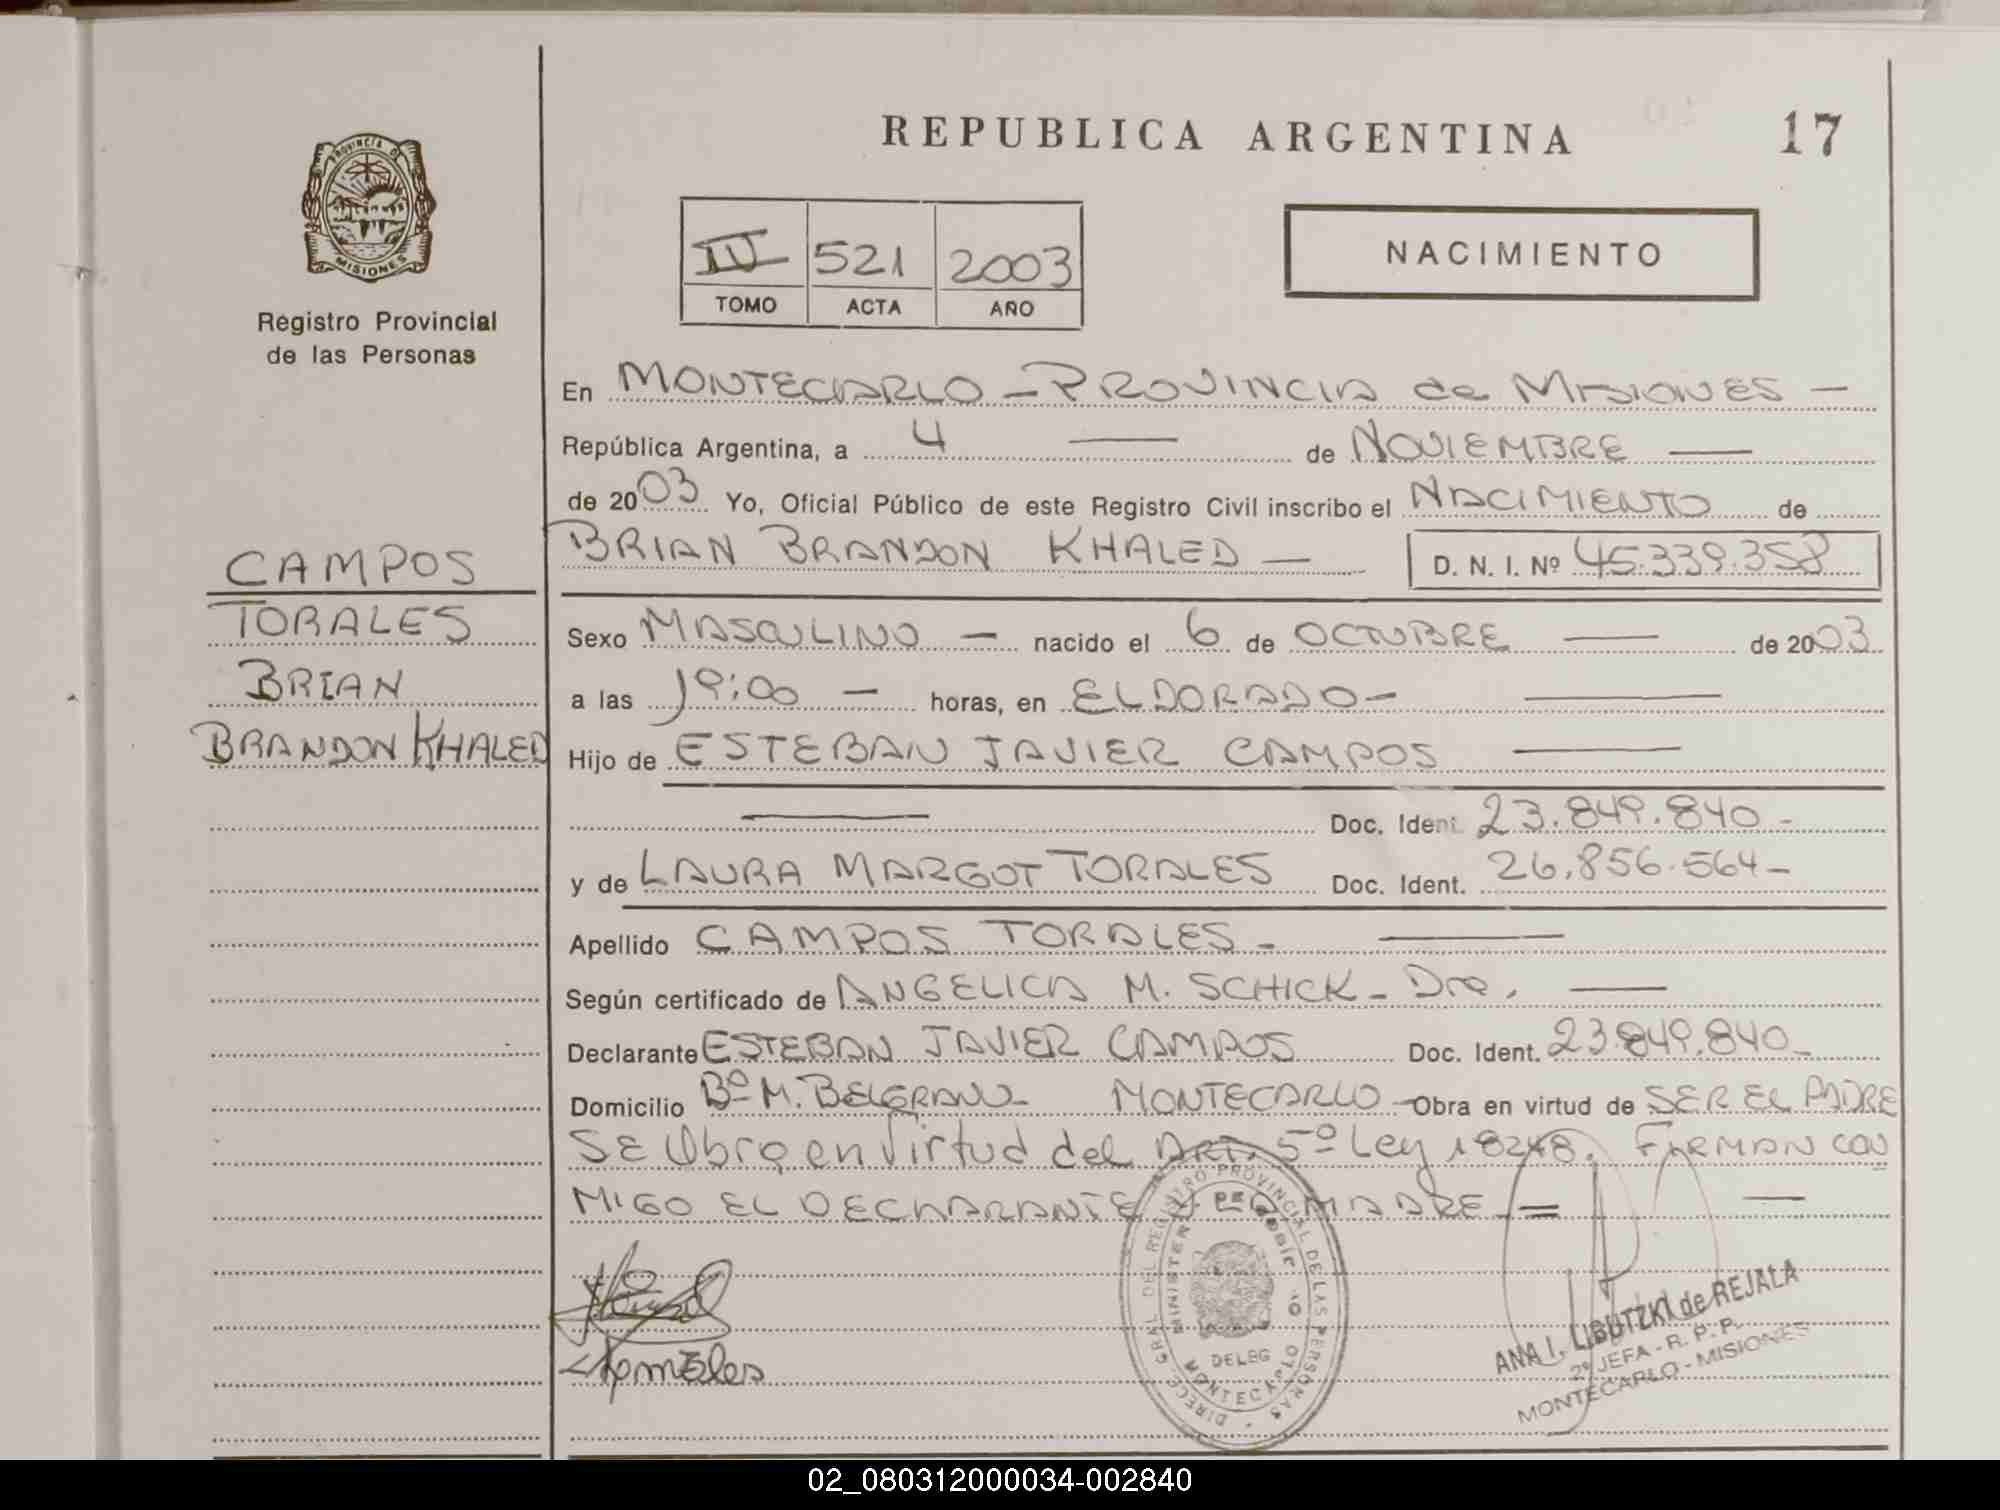 REPUBLICA ARGENTINA
17
PROVINCIA DE
MISIONES
Registro Provincial
de las Personas
IV 521 2003
TOMO ACTA AÑO
NACIMIENTO
En MONTECARLO - PROVINCIA de MISIONES -
República Argentina, a 4 — de NOVIEMBRE —
de 2003 Yo, Oficial Público de este Registro Civil inscribo el NACIMIENTO de
BRIAN BRANDON KHALED — D. N. I. Nº 45.339.358
CAMPOS
TORALES
BRIAN
BRANDON KHALED
Sexo MASCULINO — nacido el 6 de OCTUBRE — de 2003
a las 19:00 — horas, en ELDORADO - —
Hijo de ESTEBAN JAVIER CAMPOS —
— Doc. Ident. 23.849.840 -
y de LAURA MARGOT TORALES Doc. Ident. 26.856.564 -
Apellido CAMPOS TORALES - —
Según certificado de ANGELICA M. SCHICK - Dra. —
Declarante ESTEBAN JAVIER CAMPOS Doc. Ident. 23.849.840 -
Domicilio Bº M. BELGRANO - MONTECARLO - Obra en virtud de SER EL PADRE
SE Obra en Virtud del ART. 5º Ley 18248. FIRMAN CON
MIGO EL DECLARANTE Y LA MADRE = —
DIRECC. GRAL. DEL REGISTRO PROVINCIAL DE LAS PERSONAS
DELEG
MONTECARLO
ANA I. LIBUTZKI de REJALA
2º JEFA - R. P. P.
MONTECARLO - MISIONES
02_080312000034-002840